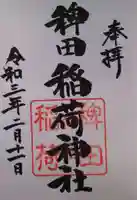 奉拝
稗田稲荷神社
令和三年二月十一日
稗田
稲荷